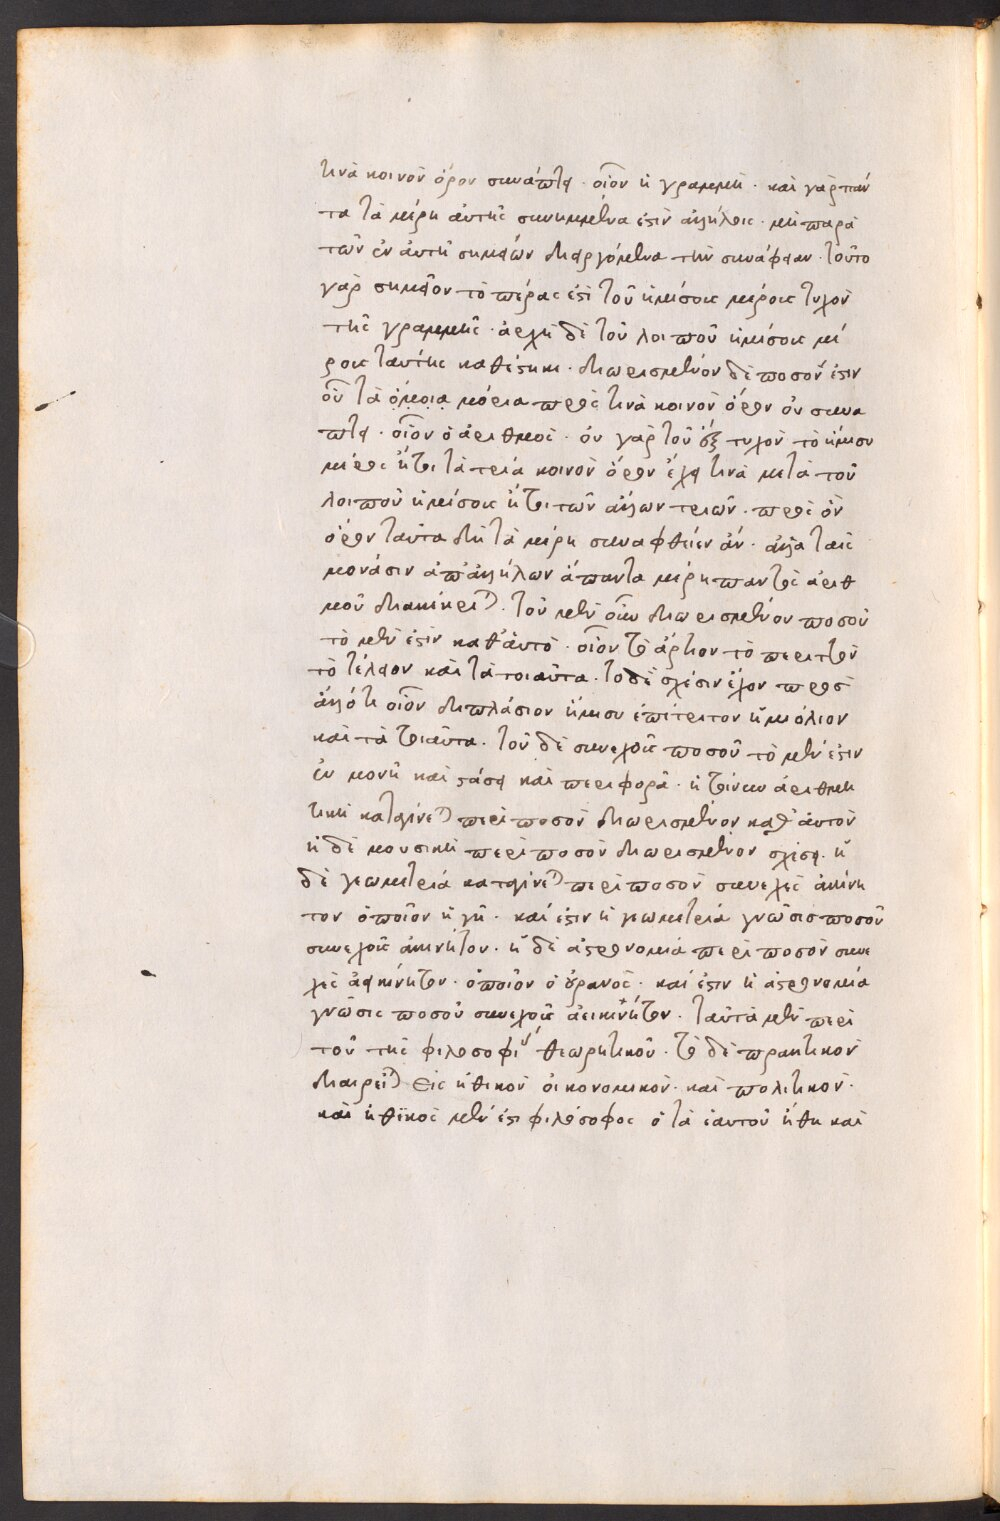 τινὰ κοινὸν ὅρον συνάπτει. οἷον ἡ γραμμή. καὶ γὰρ πάν
τα τὰ μέρη αὐτῆς συνημμένα ἐστὶν ἀλλήλοις. μὴ παρὰ
τῶν ἐν αὐτῇ σημείων διειργόμενα τὴν συνάφειαν. τοῦτο
γὰρ σημεῖον τὸ πέρας ἐστὶ τοῦ ἡμίσους μέρους τυχὸν
τῆς γραμμῆς. ἀρχὴ δὲ τοῦ λοιποῦ ἡμίσους μέ
ρους ταύτης καθέστηκε. διωρισμένον δὲ ποσόν ἐστιν
οὗ τὰ ὅμοια μόρια πρός τινὰ κοινὸν ὅρον οὐ συνά
πτει. οἷον ὁ ἀριθμός. οὐ γὰρ τοῦ ἓξ τυχὸν τὸ ἥμισυ
μέρος ἤτοι τὰ τρία κοινὸν ὅρον ἔχει τινὰ μετὰ τοῦ
λοιποῦ ἡμίσους ἤτοι τῶν ἄλλων τριῶν. πρὸς ὃν
ὅρον ταῦτα δὴ τὰ μέρη συναφθείεν ἄν. ἀλλὰ ταῖς
μονάσιν ἀπ' ἀλλήλων ἅπαντα μέρη παντὸς ἀριθ
μοῦ διακέκριται. τοῦ μὲν οὖν διωρισμένου ποσοῦ
τὸ μέν ἐστιν καθ' αὑτό. οἷον τὸ ἄρτιον τὸ περιττὸν
τὸ τέλειον καὶ τὰ τοιαῦτα. τὸ δὲ σχέσιν ἔχον πρὸς
ἄλλό τι οἷον διπλάσιον ἥμισυ ἐπίτριτον ἡμιόλιον
καὶ τὰ τοιαῦτα. τοῦ δὲ συνεχοῦς ποσοῦ τὸ μέν ἐστιν
ἐν μονῇ καὶ στάσει καὶ περιφορᾷ. ἡ τοίνυν ἀριθμη
τικὴ καταγίνεται περὶ ποσὸν διωρισμένον καθ' αὑτὸν
ἡ δὲ μουσικὴ περὶ ποσὸν διωρισμένον σχέσει. ἡ
δὲ γεωμετρία καταγίνεται περὶ ποσὸν συνεχὲς ἀκίνη
τον ὁποῖον ἡ γῆ. καί ἐστιν ἡ γεωμετρία γνῶσις ποσοῦ
συνεχοῦς ἀκινήτου. ἡ δὲ ἀστρονομία περὶ ποσὸν συνε
χὲς ἀεικίνητον. ὁποῖον ὁ οὐρανός. καί ἐστιν ἡ ἀστρονομία
γνῶσις ποσοῦ συνεχοῦς ἀεικινήτου. ταῦτα μὲν περὶ
τοῦ τῆς φιλοσοφί θεωρητικοῦ. τὸ δὲ πρακτικὸν
διαιρεῖται εἰς ἠθικὸν οἰκονομικὸν. καὶ πολιτικόν.
καὶ ἠθικὸς μέν ἐστι φιλόσοφος ὁ τὰ ἑαυτοῦ ἤθη καὶ